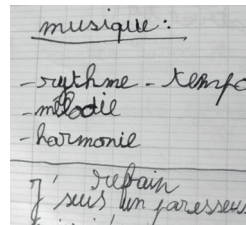 musique :
- rythme - tempo
- mélodie
- harmonie
refrain
J'suis un paresseux